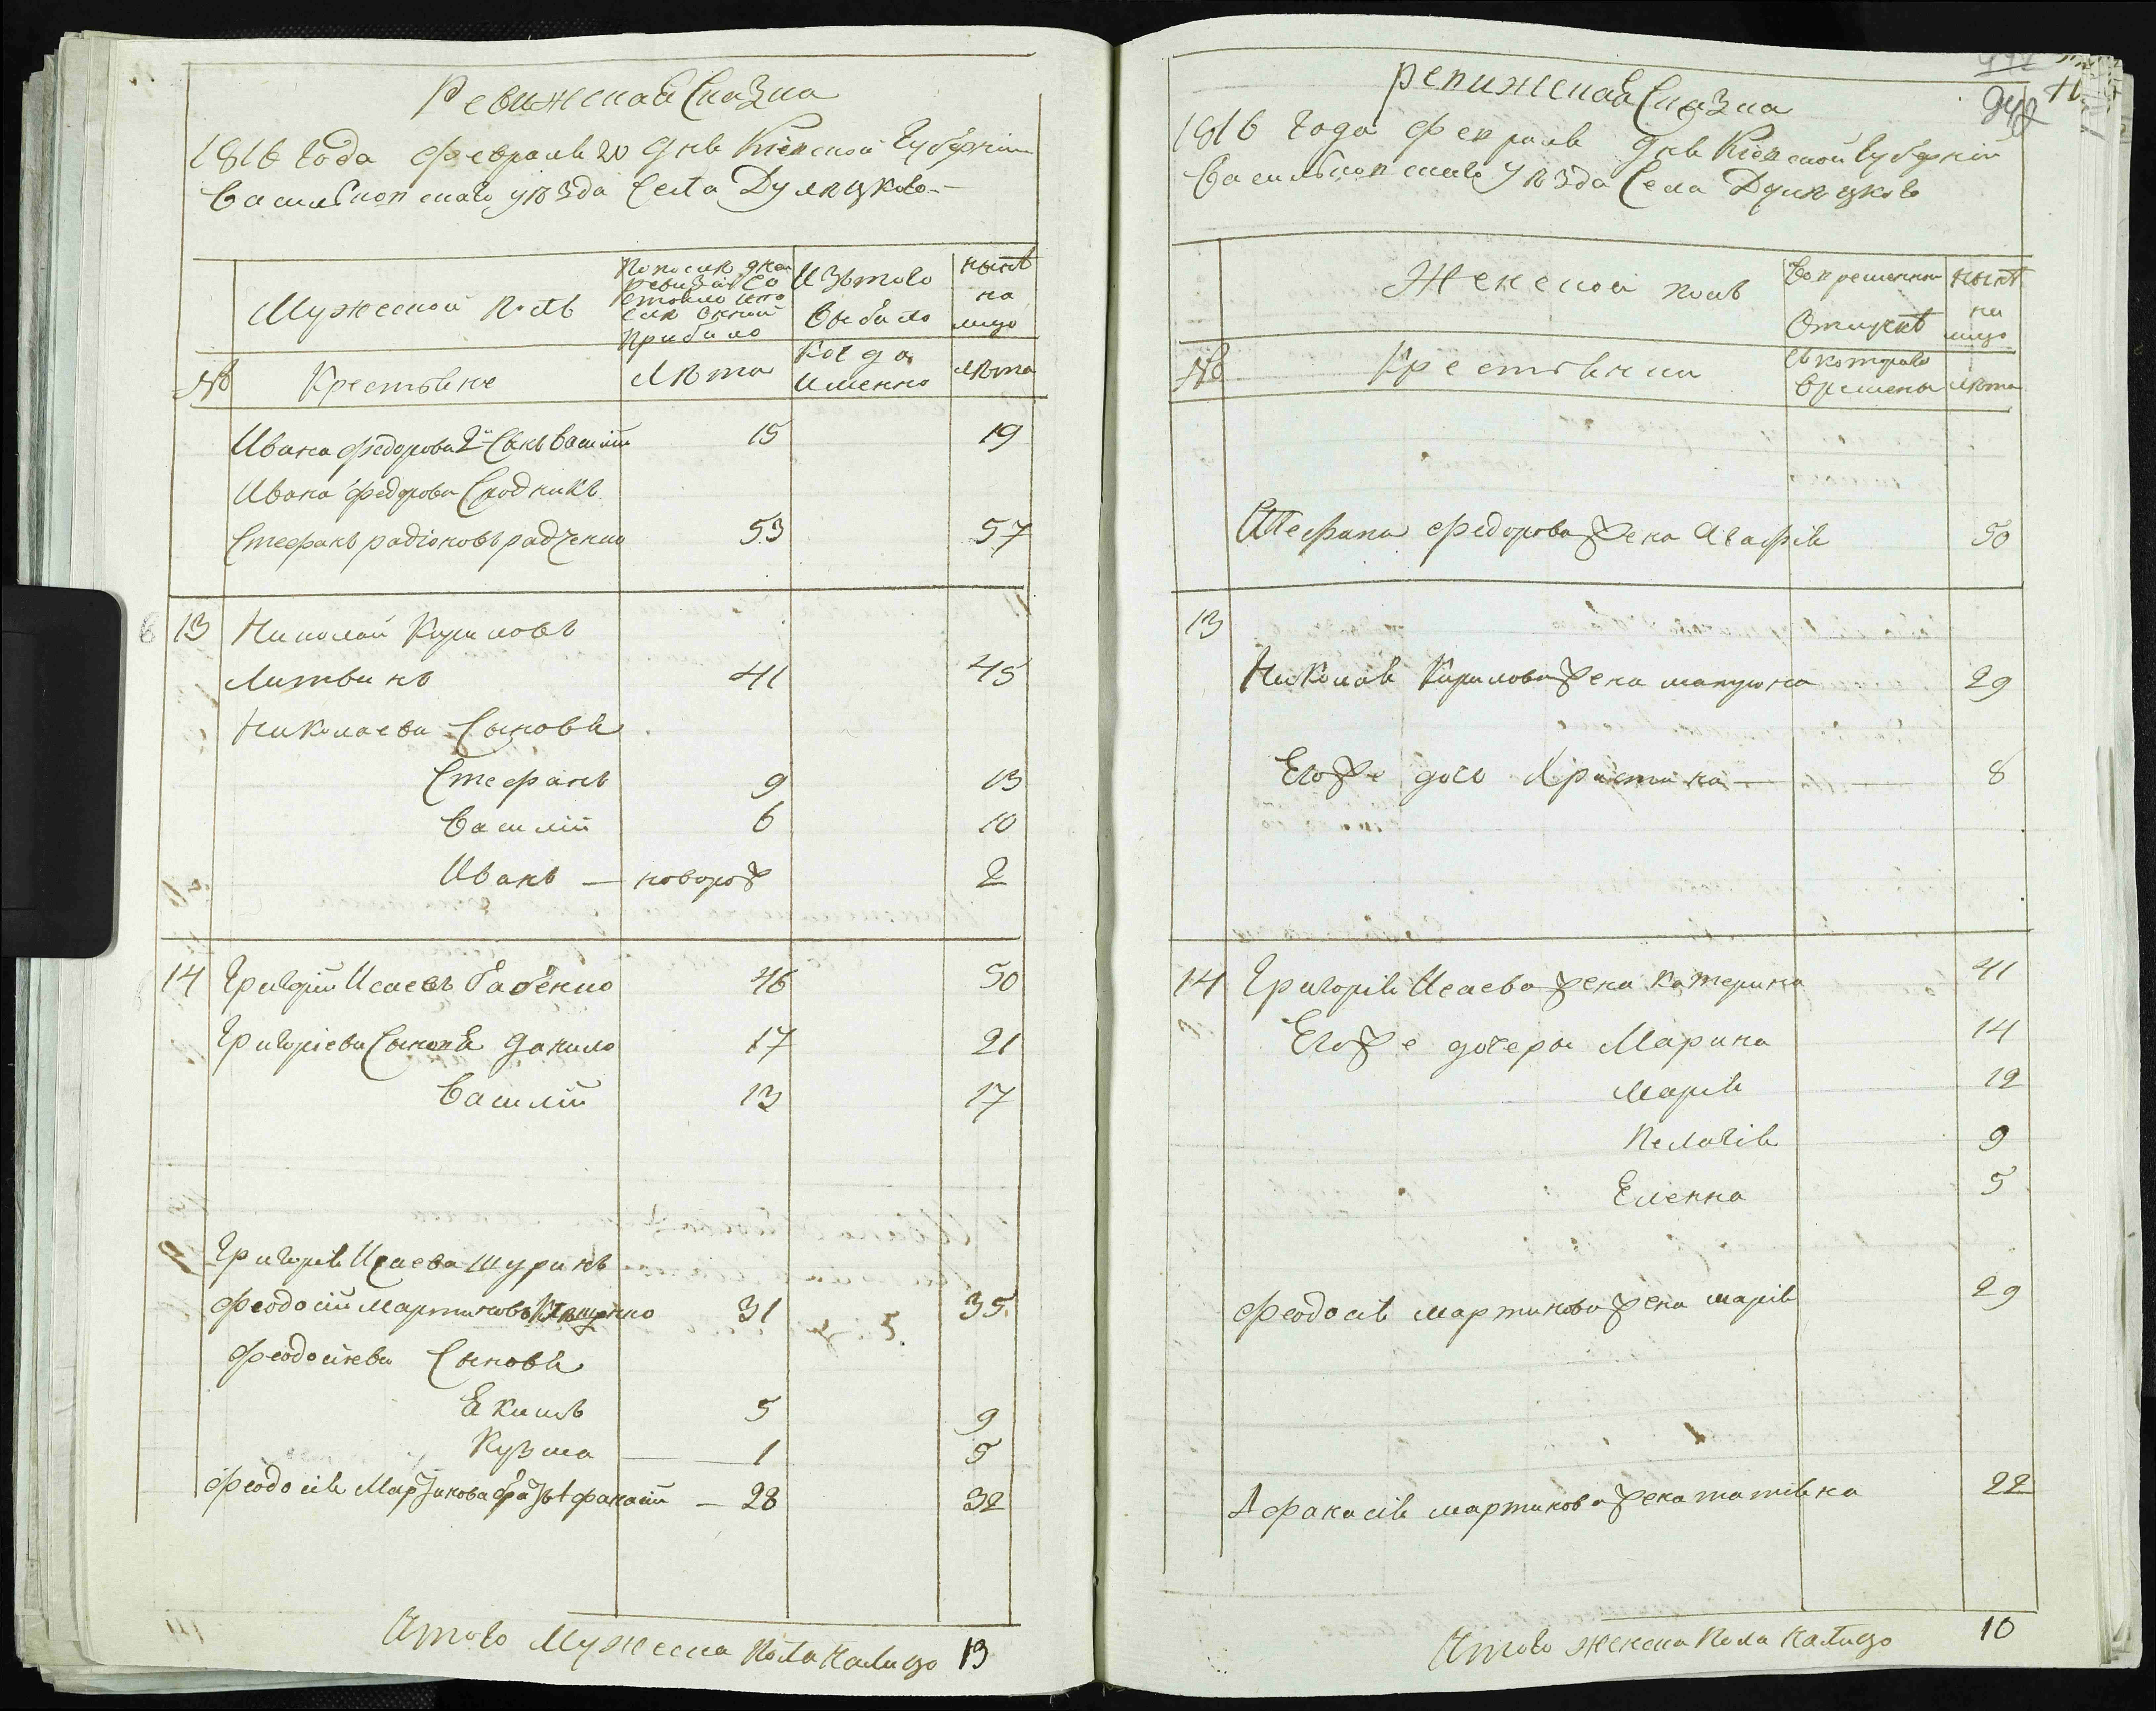 Ревижская Сказка
1816 года февраля 20 дня Кіевской Губерніи
Васильковскаго уѣзда Села Дулицкого
Мужеской полъ
По послѣдней ревизіи состояло и после оной прибыло
Изъ того выбыло
ныне на лицо
№ Крестьяне Лѣта Когда именно лѣта
Ивана Федорова 2й Сынъ Василий 15 19
Ивана Федорова Сродникъ
Стефанъ радіоновъ радченко 53 57
13 Николай Кириловъ
Литвинъ 41 45
Николаева Сыновя
Стефанъ 9 13
Василій 6 10
Иванъ новорож 2
14 Григорій Исаевъ бабенко 46 50
Григоріева Сыновя данило 17 21
Василій 13 17
Григорія Исаева Шуринъ
Феодосій Мартиновъ 31 35
Феодосіева Сыновя
Екимъ 5 9
Кузма 1 5
Феодосія Мартинова братъ Афанасій 28 32
Итого Мужеска Пола Налицо 13
442
11
ревижская Сказка
1816 года Февраля дня Кіевской Губерніи
Васильковскаго Уѣзда Села Дулицкого
Женской полъ
Во временной Отлучке
ныне на лицо
№ Крестьянки Съ которого времены лѣта
Стефана Федорова жена Агафія 50
13
Николая Кирилова жена мотрона 29
Его же дочь Христина 8
14 Григорія Исаева жена Катерина 41
Его же дочеры Марина 14
Марія 12
Пелагія 9
Еленна 5
Феодосія мартинова жена марія 29
Афанасія мартинова жена татіяна 22
Итого женска Пола Налицо 10